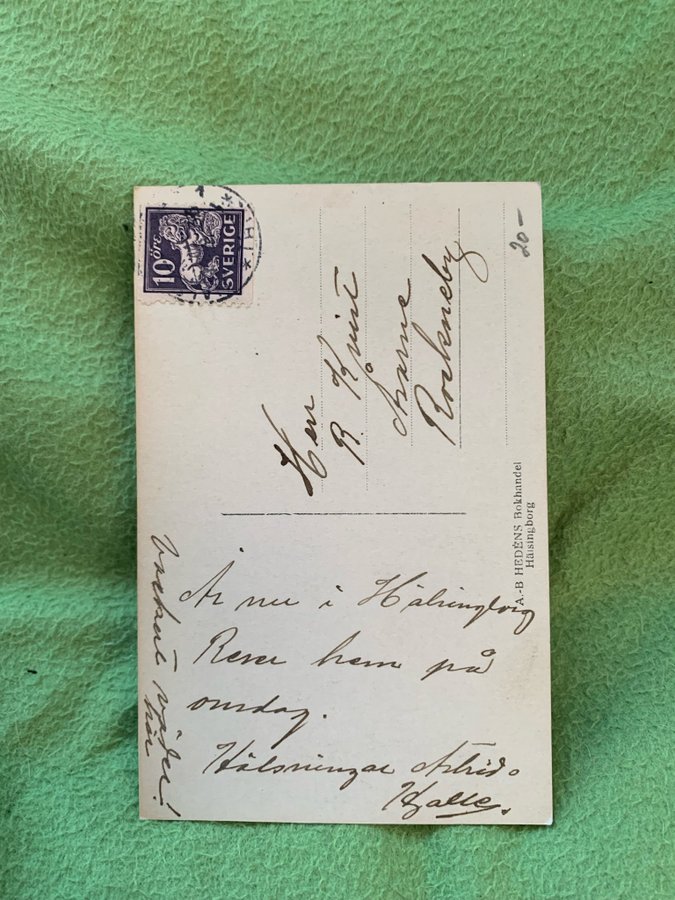 10 öre
SVERIGE
20-
Herr
R. Kvist
Rockneby
A.-B HEDÉNS Bokhandel
Hälsingborg
Är nu i Hälsingborg
Reser hem på
onsdag.
Hälsningar Astrid o
Hjalle.
vackert väder!
här